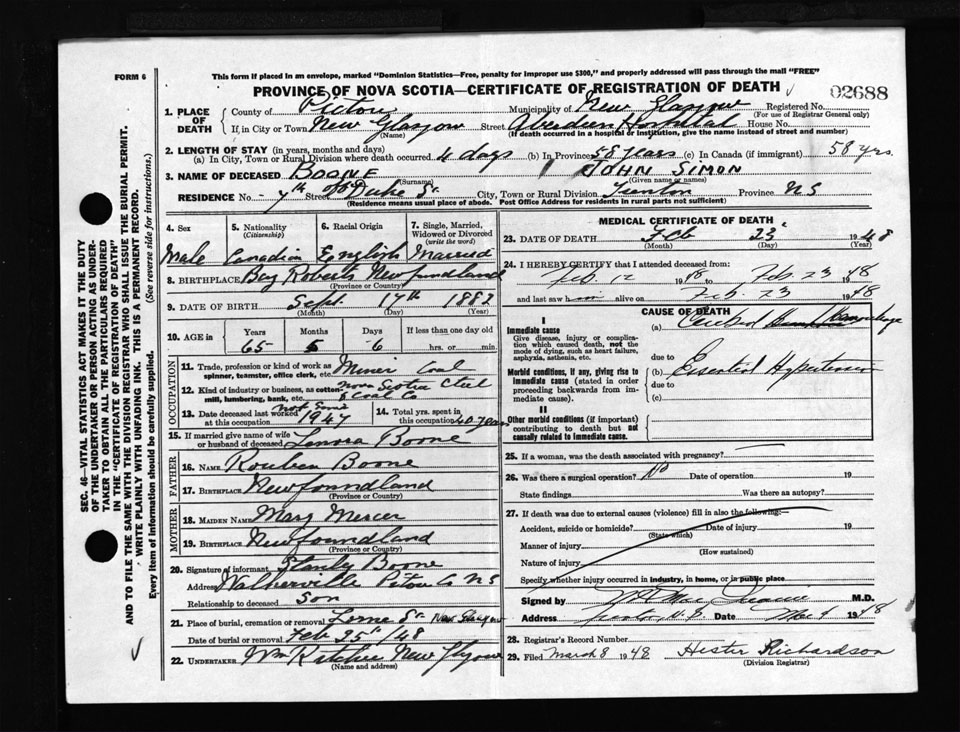 FORM 6
This form if placed in an envelope, marked "Dominion Statistics—Free, penalty for improper use $300," and properly addressed will pass through the mail "FREE"
PROVINCE OF NOVA SCOTIA—CERTIFICATE OF REGISTRATION OF DEATH
02688
1. PLACE OF DEATH
County of Pictou Municipality of New Glasgow Registered No.
(For use of Registrar General only)
If in City or Town New Glasgow Street Aberdeen Hospital House No.
(Name) (If death occurred in a hospital or institution, give the name instead of street and number)
2. LENGTH OF STAY (in years, months and days)
(a) In City, Town or Rural Division where death occurred 4 days (b) In Province 58 years (c) In Canada (if immigrant) 58 yrs.
3. NAME OF DECEASED BOONE JOHN SIMON
(Surname) (Given name or names)
RESIDENCE No. 7th Street Duke St. City, Town or Rural Division Trenton Province N S
(Residence means usual place of abode. Post Office Address for residents in rural parts not sufficient)
4. Sex 5. Nationality (Citizenship) 6. Racial Origin 7. Single, Married, Widowed or Divorced (write the word)
Male Canadian English Married
8. BIRTHPLACE Bay Roberts Newfundland
(Province or Country)
9. DATE OF BIRTH Sept. 17th 1882
(Month) (Day) (Year)
10. AGE in Years Months Days If less than one day old
65 5 6 hrs. or min.
OCCUPATION
11. Trade, profession or kind of work as spinner, teamster, office clerk, etc. Miner Coal
12. Kind of industry or business, as cotton mill, lumbering, bank, etc. Nova Scotia Steel & Coal Co
13. Date deceased last worked at this occupation 1947
14. Total yrs. spent in this occupation 40 years
15. If married give name of wife or husband of deceased Lenora Boone
FATHER
16. NAME Reuben Boone
17. BIRTHPLACE Newfoundland
(Province or Country)
MOTHER
18. MAIDEN NAME Mary Mercer
19. BIRTHPLACE Newfoundland
(Province or Country)
20. Signature of informant Stanly Boone
Address Walkerville Pictou Co NS
Relationship to deceased Son
21. Place of burial, cremation or removal Lorne St New Glasgow
Date of burial or removal Feb 25 /48
22. UNDERTAKER Wm Ritchie New Glasgow
(Name and address)
MEDICAL CERTIFICATE OF DEATH
23. DATE OF DEATH Feb 23 1948
(Month) (Day) (Year)
24. I HEREBY CERTIFY that I attended deceased from:
Feb. 12 1948 to Feb 23 1948
and last saw him alive on Feb. 23 1948
CAUSE OF DEATH
I
Immediate cause
Give disease, injury or complication which caused death, not the mode of dying, such as heart failure, asphyxia, asthenia, etc.
(a) Cerebral Hemorrhage
due to
Morbid conditions, if any, giving rise to immediate cause (stated in order proceeding backwards from immediate cause).
(b) Essential Hypertension
due to
(c)
II
Other morbid conditions (if important) contributing to death but not causally related to immediate cause.
25. If a woman, was the death associated with pregnancy?
26. Was there a surgical operation? No Date of operation 19
State findings Was there an autopsy?
27. If death was due to external causes (violence) fill in also the following:—
Accident, suicide or homicide? Date of injury 19
(State which)
Manner of injury
(How sustained)
Nature of injury
Specify whether injury occurred in industry, in home, or in public place
Signed by M.D.
Address Date 1948
28. Registrar's Record Number
29. Filed March 8 1948 Hester Richardson
(Division Registrar)
SEC. 46—VITAL STATISTICS ACT MAKES IT THE DUTY
OF THE UNDERTAKER OR PERSON ACTING AS UNDERTAKER TO OBTAIN ALL THE PARTICULARS REQUIRED
IN THE "CERTIFICATE OF REGISTRATION OF DEATH"
AND TO FILE THE SAME WITH THE DIVISION REGISTRAR WHO SHALL ISSUE THE BURIAL PERMIT.
WRITE PLAINLY WITH UNFADING INK. THIS IS A PERMANENT RECORD.
Every item of information should be carefully supplied. (See reverse side for instructions.)